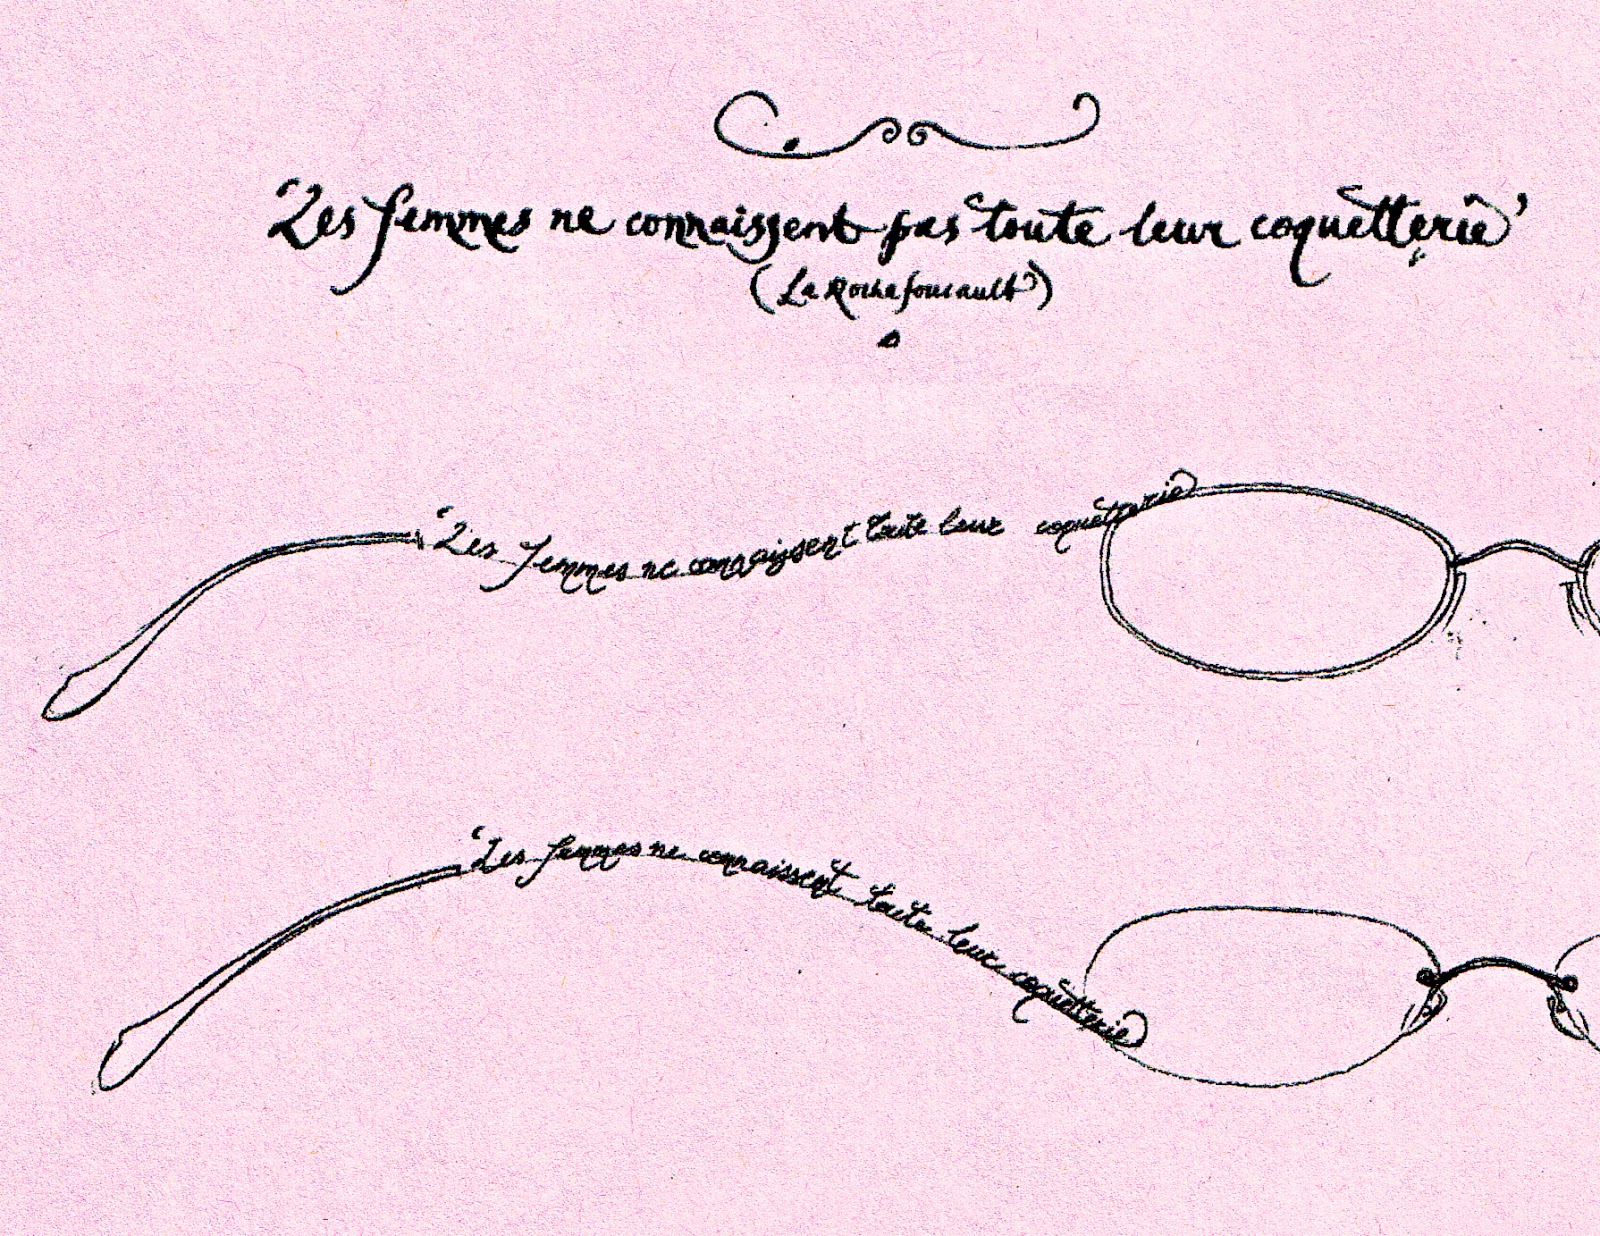 'Les femmes ne connaissent pas toute leur coquetterie'
(La Rochafoucault)
'Les femmes ne connaissent toute leur coquetterie
'Les femmes ne connaissent toute leur coquetterie